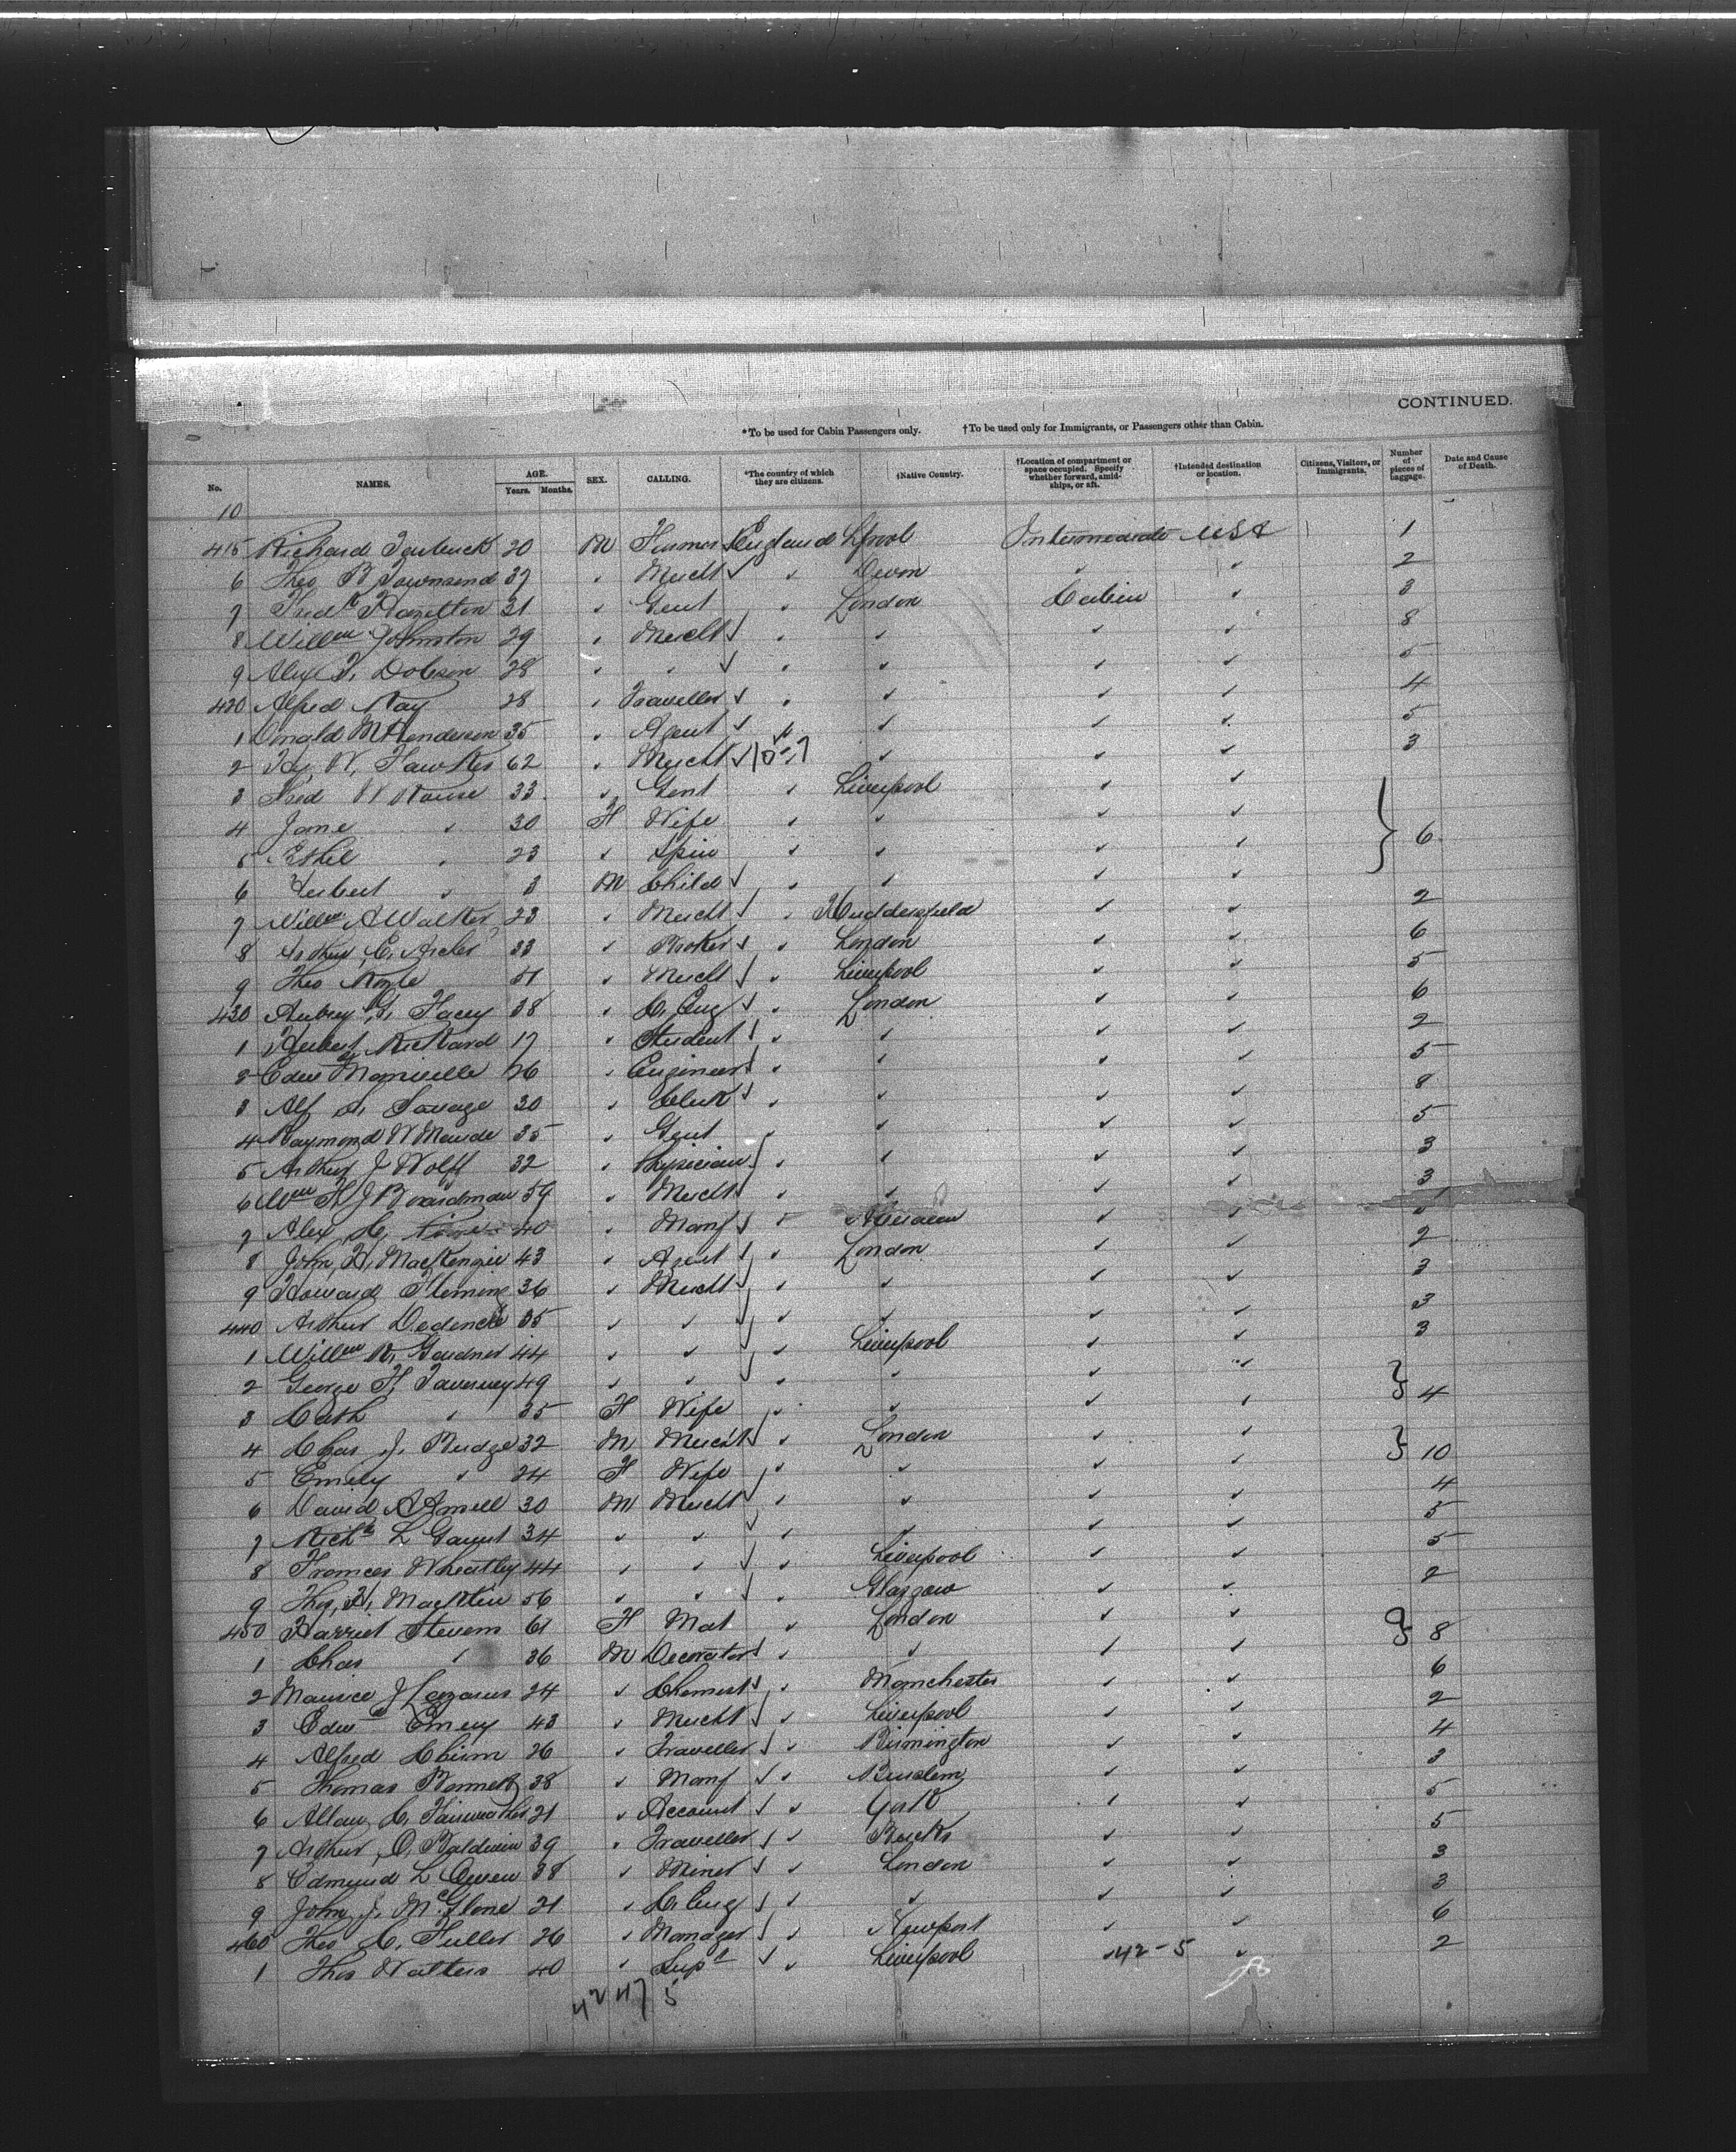 CONTINUED.
*To be used for Cabin Passengers only. †To be used only for Immigrants, or Passengers other than Cabin.
No. NAMES. AGE. Years. Months. SEX. CALLING. *The country of which they are citizens. †Native Country. †Location of compartment or space occupied. Specify whether forward, amidships, or aft. †Intended destination or location. Citizens, Visitors, or Immigrants. Number of pieces of baggage. Date and Cause of Death.
10
415 Richard Tarbuck 20 M Farmer England Lpool Intermediate USA 1
6 Theo B Townsend 37 " Mercht " Devon " " 2
7 Fredk Hazelton 31 " Gent " London Cabin " 3
8 Willm Johnston 29 " Mercht " " " " 8
9 Alex F. Dobson 28 " " " " " " 5
420 Alfred May 28 " Traveller " " " " 4
1 Donald M Henderson 35 " Agent " " " " 5
2 Hy. W. Fawkes 62 " Mercht " " " 3
3 Fred W 33 " Gent " Liverpool " "
4 Jane " 30 F Wife " " " "
5 Ethel " 23 " Spin " " " " } 6
6 Herbert " 3 M Child " " " "
7 Willm A Walker 23 " Mercht " Huddersfield " " 2
8 Arthur C. Archer 33 " Broker " London " " 6
9 Theo 51 " Mercht " Liverpool " " 5
430 Aubrey G. Facey 38 " C. Eng " London " " 6
1 Herbert Rickard 17 " Student " " " " 2
2 Edw 26 " Engineer " " " " 5
3 Alf Savage 30 " Clerk " " " " 8
4 Raymond W Maude 35 " Gent " " " " 5
5 Arthur J Wolff 32 " Physician " " " " 3
6 Wm H J Boardman 59 " Mercht " " " " 3
7 Alex C. 40 " Manf " " "
8 John H. MacKenzie 43 " Agent " London " " 2
9 Howard Fleming 36 " Mercht " " " " 3
440 Arthur 35 " " " " " " 3
1 Willm R. Gardner 44 " " " Liverpool " " 3
2 George H. 49 " " " " " "
3 Cath " 35 F Wife " " " " } 4
4 Chas J. Budge 32 M Mercht " London " "
5 Emily " 24 F Wife " " " " } 10
6 David A 30 M Mercht " " " " 4
7 Richd L Gaunt 34 " " " " " " 5
8 Frances Wheatley 44 " " " Liverpool " " 5
9 Thos. H. 56 " " " Glasgow " " 2
450 Harriet Stevens 61 F Mat " London " "
1 Chas " 36 M Decorator " " " " } 8
2 Maurice J Lazarus 24 " Chemist " Manchester " " 6
3 Edw Emery 43 " Mercht " Liverpool " " 2
4 Alfred 26 " Traveller " " " 4
5 Thomas Bennett 38 " Manf " Burslem " " 3
6 Allan C. Fairweather 21 " Account " York " " 5
7 Arthur O. Baldwin 39 " Traveller " Bucks " " 5
8 Edmund L Owen 38 " Miner " London " " 3
9 John J. McGlone 21 " C. Eng " " " " 3
460 Theo C. Fuller 26 " Manager " Newport " " 6
1 Thos Walters 40 " Supt " Liverpool 42-5 " 2
42 47 5